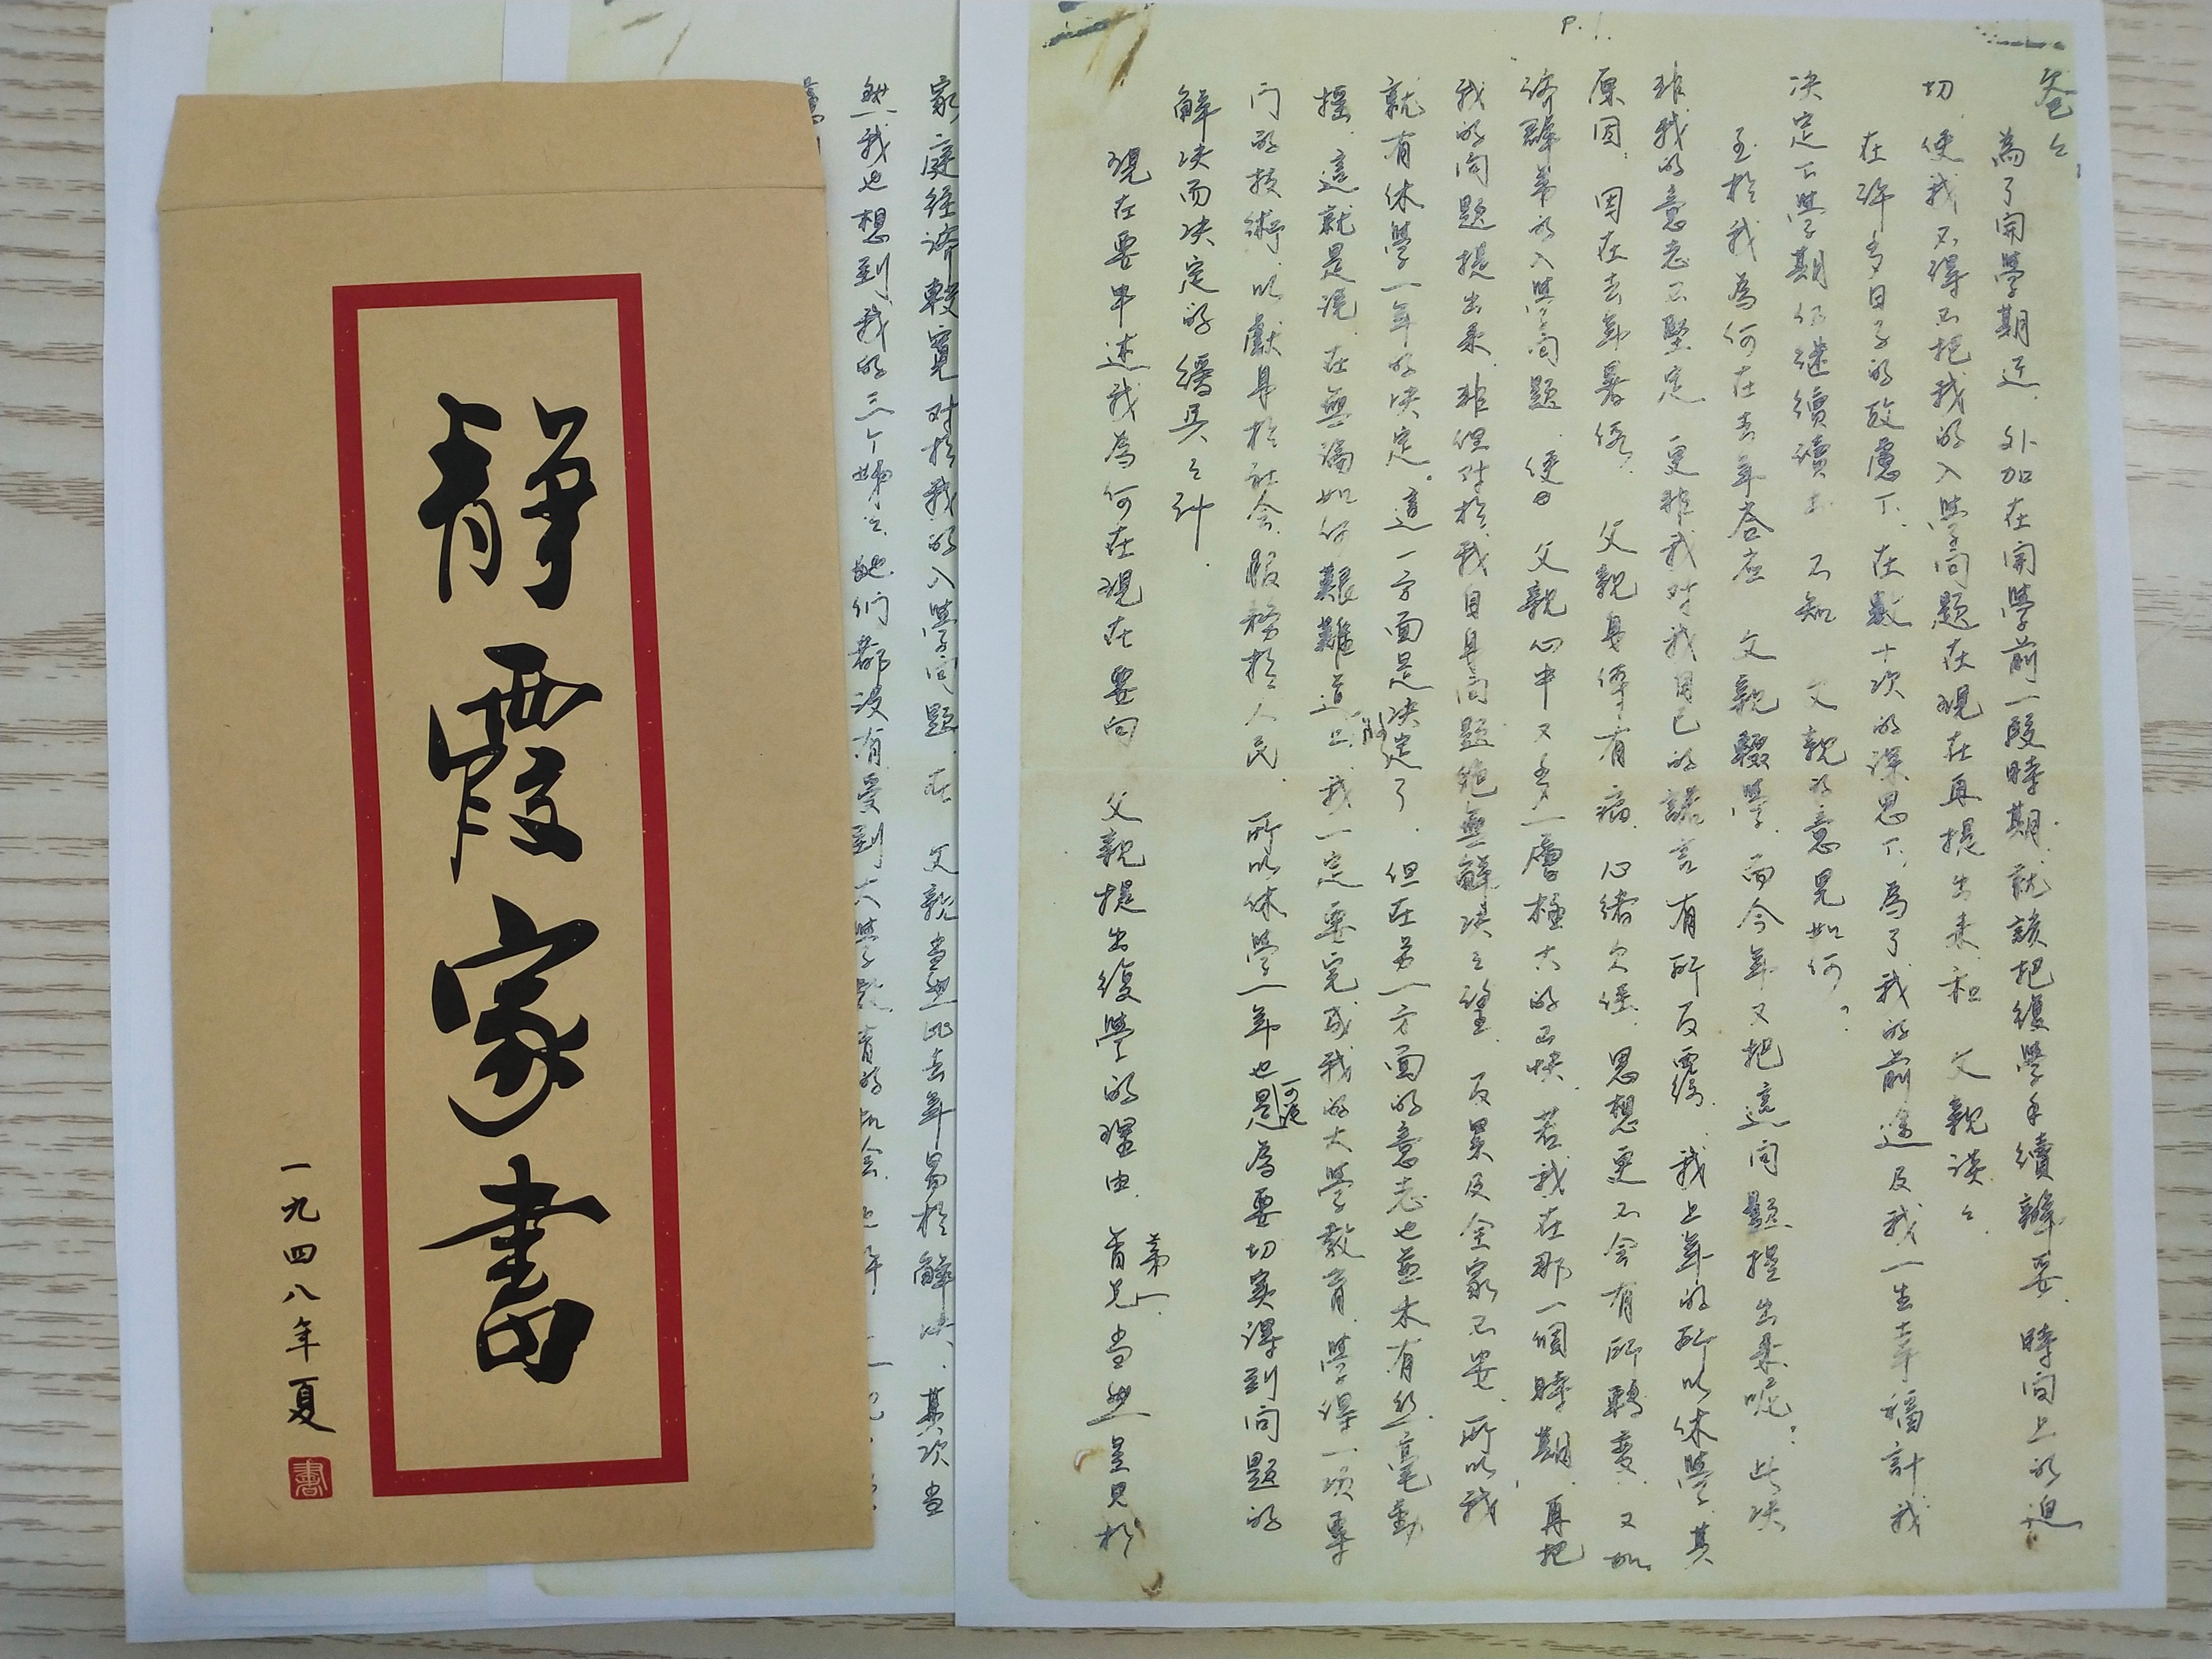 靜霞家書
一九四八年夏
書
P.1.
爸々
為了開學期近，外加在開學前一段時期，就該把復學手續辦妥，時间上的迫
切，使我不得不把我的入學问題在現在再提出來，和 父親談々。
在許多日子的攷慮下，在數十次的深思下，為了我的前途及我一生幸福計，我
决定下學期仍继續讀书，不知 父親的意見如何？
至於我為何在去年答应 父親輟學，而今年又把這问題提出來呢？此决
非我的意志不堅定，更非我对我自己的諾言有所反覆，我上年的所以休學，其
原因，因在去年暑假， 父親身体有病，心緒欠佳，思想更不会有所轉变，又加
济群弟的入學问題，使 父親心中又多一層極大的不快，若我在那一個時期，再把
我的问題提出來，非但对於我自身问題絶無解决之望，反累及全家不安，所以我
就有休學一年的决定。這一方面是决定了，但在另一方面的意志也並未有丝毫動
摇，這就是說，在無論如何艱難道上，我一定要完成我的大學教育，學得一項專
门的技術，以獻身於社会，服務於人民，所以休學一年也可說是為要切实得到问題的
解决而决定的緩兵之计。
現在要申述我為何在現在要向 父親提出復學的理由，第一，首先当然是見於
家庭经济較寬，对於我的入學问題，在 父親当然比去年易於解决，其次当
然我也想到我的三个姊々，她们都没有受到大學教育的机会